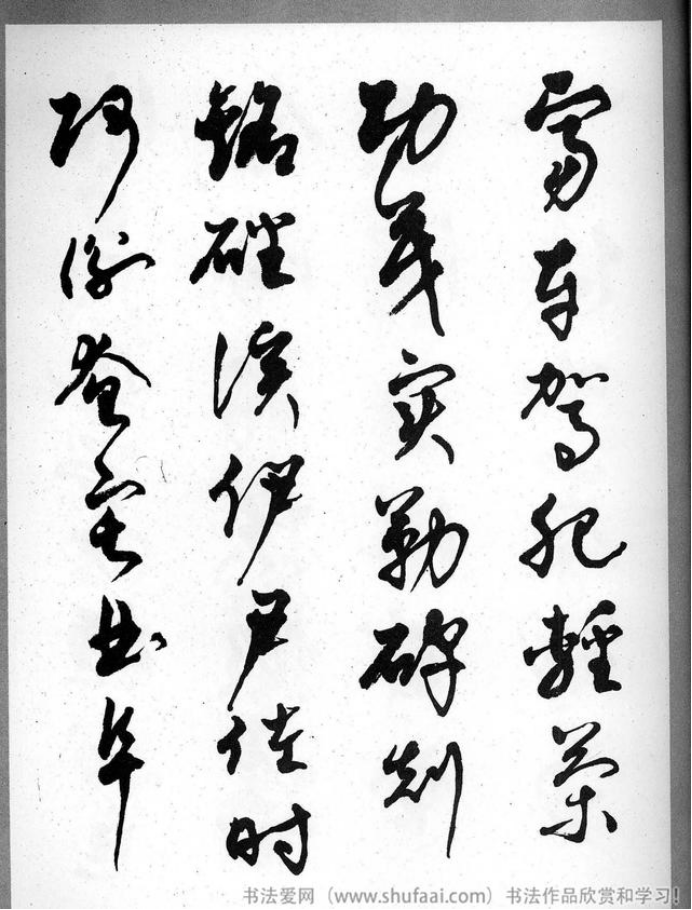 富车驾肥轻策
功茂实勒碑刻
铭磻溪伊尹佐时
阿衡奄宅曲阜
书法爱网（www.shufaai.com）书法作品欣赏和学习！